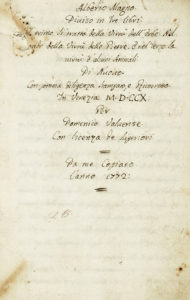 Alberto Magno
Diviso in Tre libri
Nel primo si tratta della Virtù delle Erbe Nel
secondo della Virtù delle Pietre, e nel terzo la
virtù d'alcuni Animali
Di Nuovo
Con somma diligenza Stampato,
In Venezia M.DCCX.
Per
Domenico Valvense
Con licenza de Superiori
Da me Copiato
L'anno 1772: